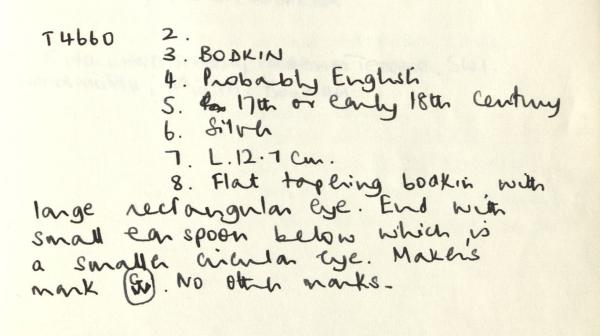 T4660 2.
3. BODKIN
4. Probably English
5. 17th or early 18th century
6. Silver
7. L.12.7 cm.
8. Flat tapering bodkin with
large rectangular eye. End with
small ear spoon below which is
a smaller circular eye. Makers
mark . No other marks.